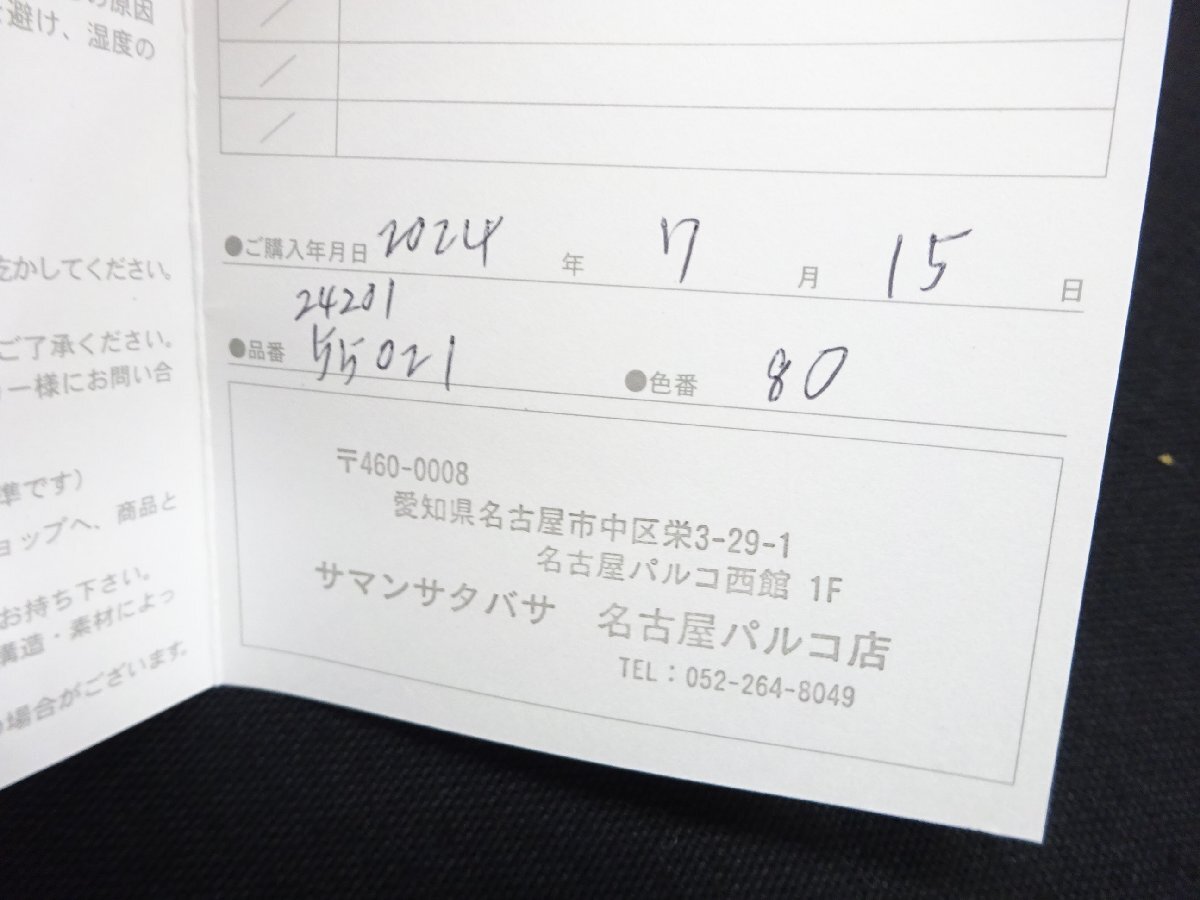 の原因
避け、湿度の
乾かしてください。
ご了承ください。
ー様にお問い合
準です）
ョップへ、商品と
お持ち下さい。
構造・素材によっ
場合がございます。
／
／
／
●ご購入年月日 2024 年 7 月 15 日
24201
●品番 55021 ●色番 80
〒460-0008
愛知県名古屋市中区栄3-29-1
名古屋パルコ西館 1F
サマンサタバサ 名古屋パルコ店
TEL：052-264-8049